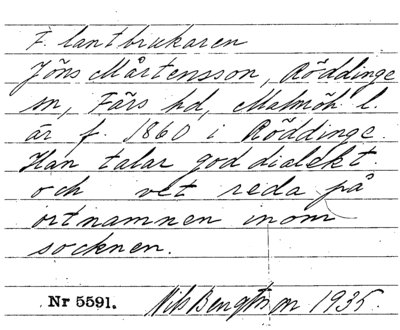 F. lantbrukaren
Jöns Mårtensson, Röddinge
sn, Färs hd, Malmöh l.
är f. 1860 i Röddinge.
Han talar god dialekt
och vet reda på
ortnamnen inom
socknen.
Nr 5591. Nils Bengtsson 1935.